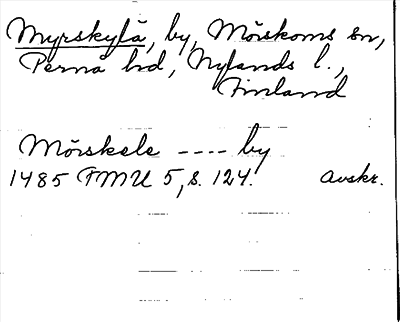 Myrskylä, by, Mörskoms sn,
Pernå hd, Nylands l.,
Finland
Mörskele ---- by
1485 FMU 5, s. 124. Avskr.